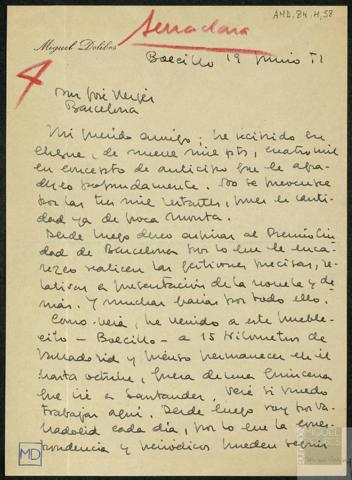 AMD, 84, H, 58
Serraclara
Miguel Delibes
Boecillo 19 junio 51
4
Don José Vergés
Barcelona
Mi querido amigo: he recibido su
cheque, de nueve mil pts, cuatro mil
en concepto de anticipo que le agra-
dezco profundamente. No se preocupe
por las tres mil restantes, pues es canti-
dad ya de poca monta.
Desde luego deseo aspirar al Premio Ciu-
dad de Barcelona por lo que le enca-
rezco realicen las gestiones precisas, re-
lativas a presentación de la novela y de-
más. Y muchas gracias por todo ello.
Como verá, he venido a este pueble-
cito - Boecillo - a 15 kilómetros de
Valladolid y pienso permanecer en él
hasta octubre, fuera de una quincena
que iré a Santander. Veré si puedo
trabajar aquí. Desde luego voy por Va-
lladolid cada día, por lo que la corres-
pondencia y periódicos pueden seguir
MD